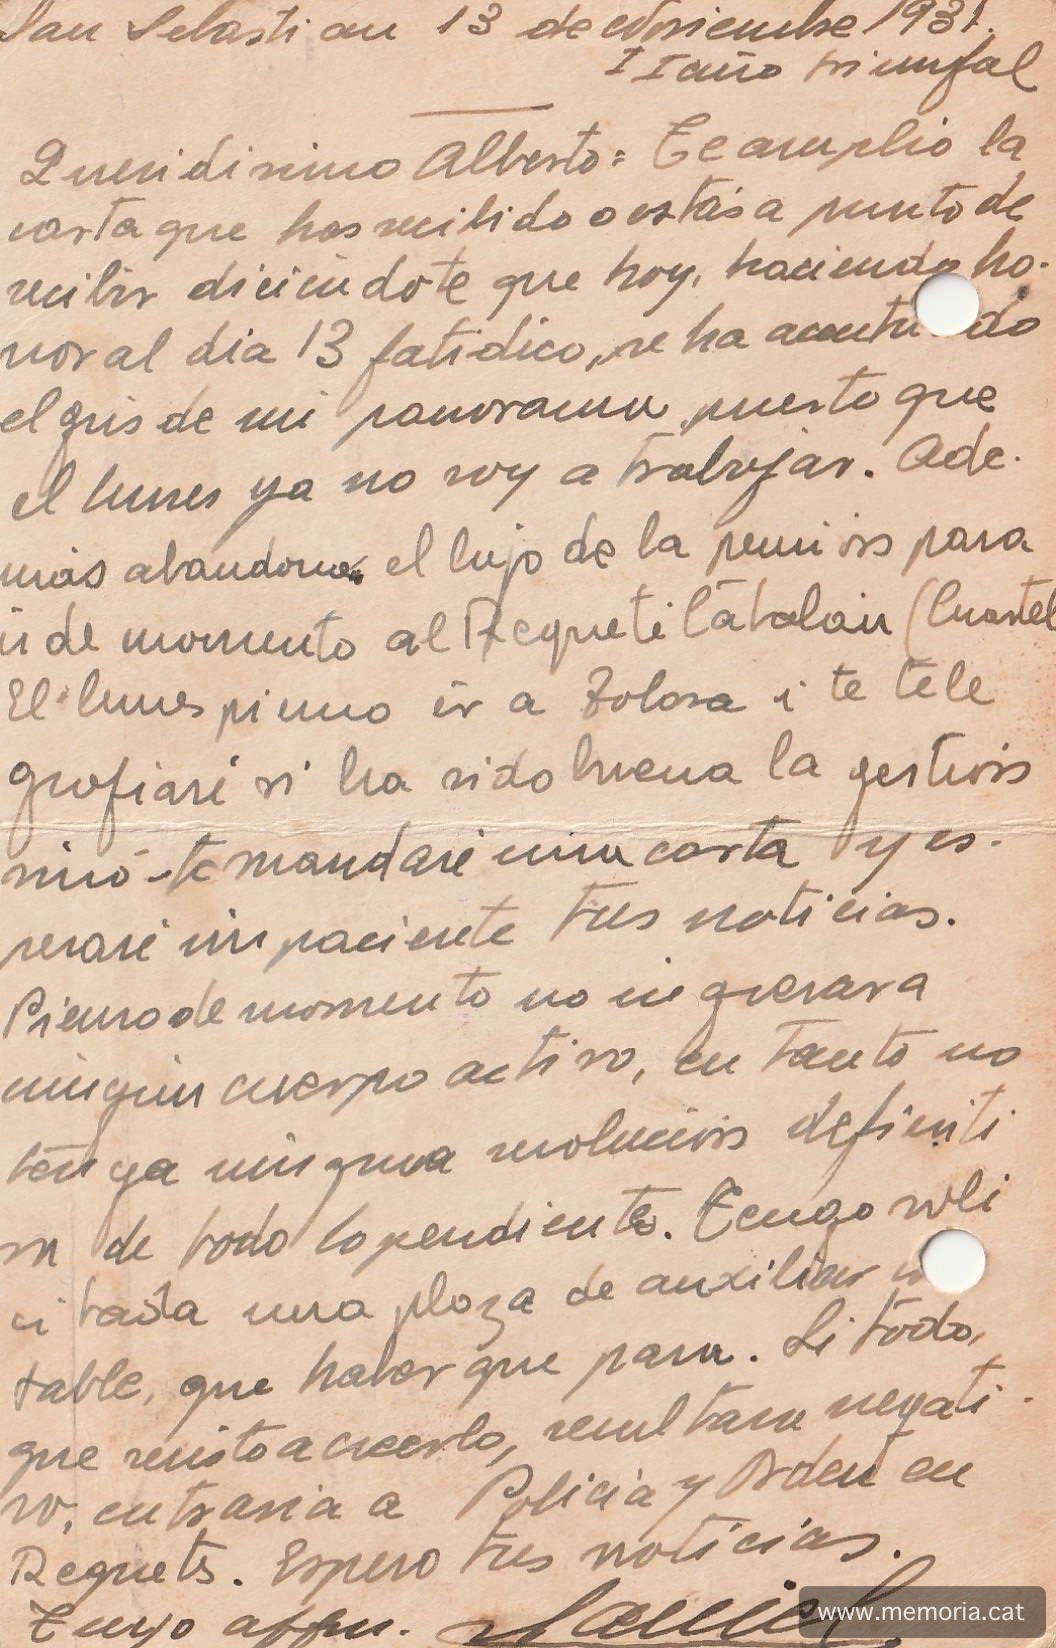 San Sebastian 13 de Noviembre 1937.
II año triunfal
Queridisimo Alberto: Te amplio la
carta que has recibido o estás a punto de
recibir diciéndote que hoy, haciendo ho-
nor al dia 13 fatidico, se ha acentu do
el gris de mi panorama, puesto que
el lunes ya no voy a trabajar. Ade-
más abandono el lujo de la pensión para
ir de momento al Requeté Catalán (Cuartel
El lunes pienso ir a Tolosa i te tele
grafiaré si ha sido buena la gestión
sinó te mandaré una carta y es-
peraré impaciente tus noticias.
Pienso de momento no ingresar a
ningún cuerpo activo, en tanto no
tenga ninguna resolución definiti
va de todo lo pendiente. Tengo soli
citada una plaza de auxiliar
table, que haber que pasa. Si todo,
que resisto a creerlo, resultara negati-
vo, entraria a Policia y Orden en
Requetés. Espero tus noticias.
Tuyo affm.
www.memoria.cat